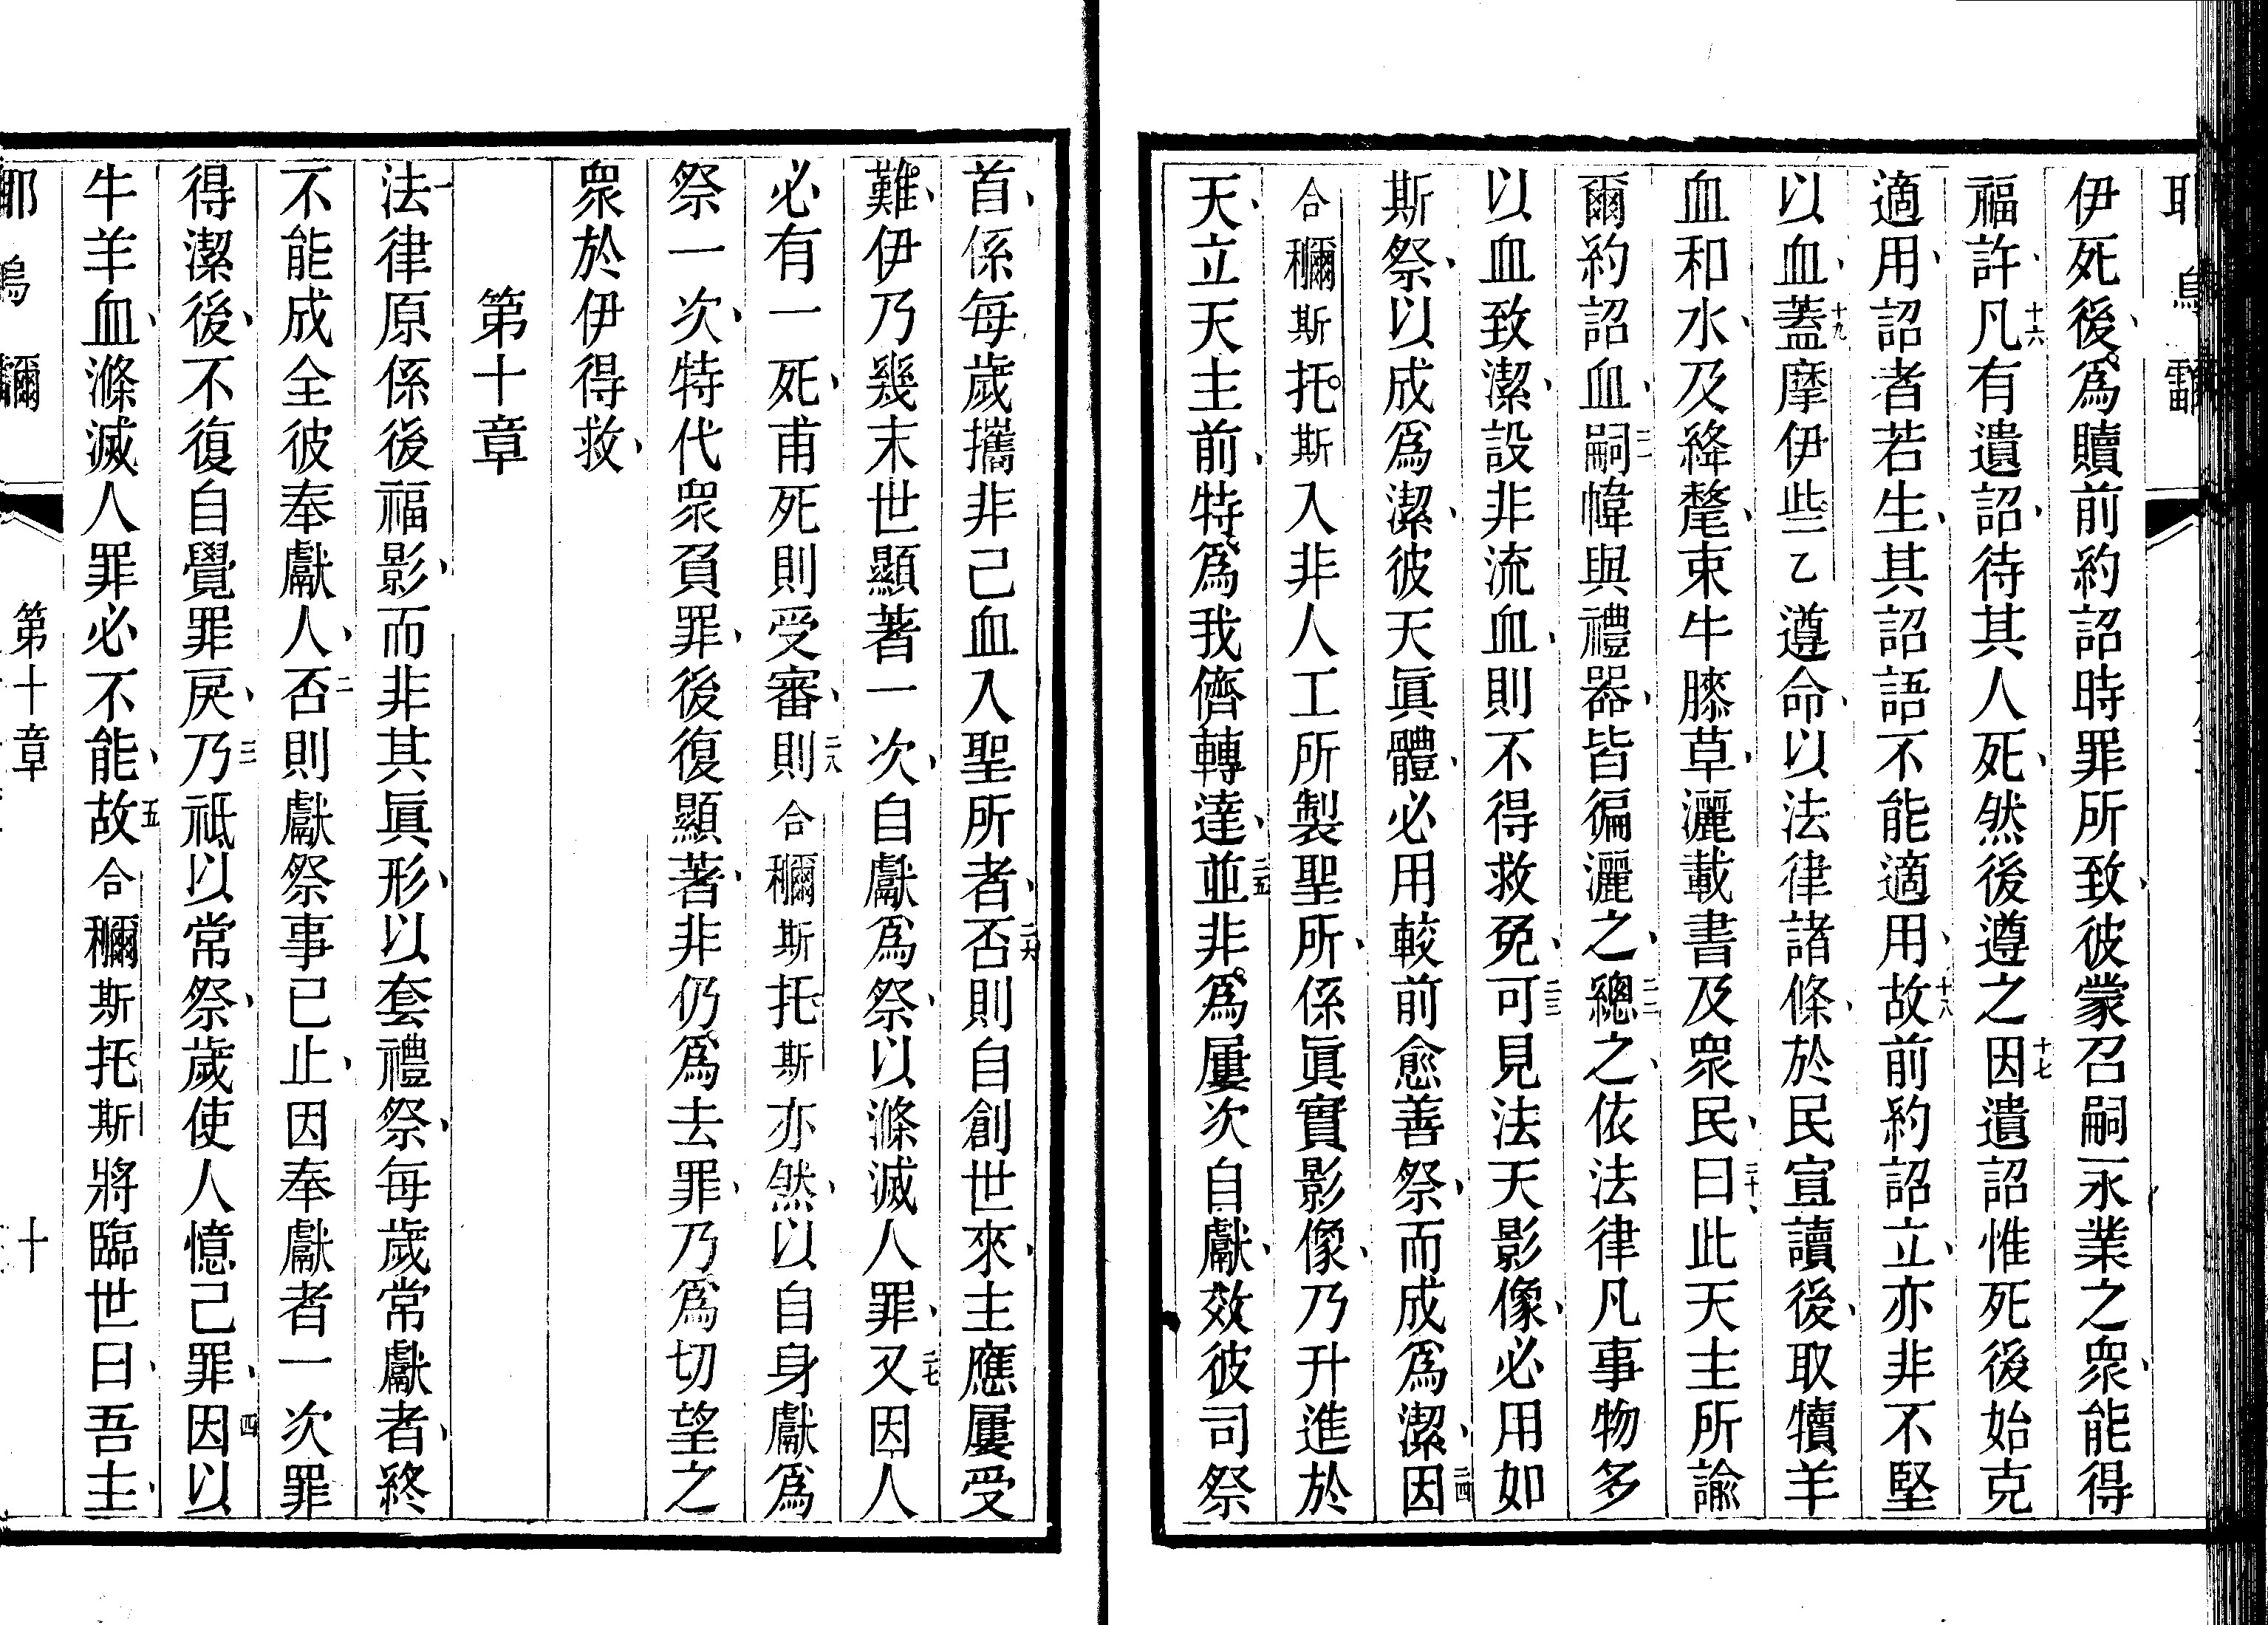 伊死後、爲贖前約詔時罪所致、彼蒙召嗣永業之衆、能得
福許、十六凡有遺詔、待其人死、然後遵之、十七因遺詔惟死後始克
適用、詔者若生、其詔語不能適用、十八故前約詔立、亦非不堅
以血、十九蓋摩伊些乙遵命、以法律諸條、於民宣讀後、取犢羊
血和水、及絳氂、束牛膝草、灑載書及衆民、二十曰、此天主所諭
爾約詔血、二一嗣幃與禮器、皆徧灑之、二二總之、依法律凡事物多
以血致潔、設非流血、則不得救免、二三可見法天影像、必用如
斯祭、以成爲潔、彼天眞體、必用較前愈善祭、而成爲潔、二四因
合穪斯托斯入非人工所製聖所、係眞實影像、乃升進於
天、立天主前、特爲我儕轉達、二五並非爲屢次自獻、效彼司祭
首、係每歲攜非己血入聖所者、二六否則自創世來、主應屢受
難、伊乃幾末世顯著一次、自獻爲祭、以滌滅人罪、二七又因人
必有一死、甫死則受審、二八則合穪斯托斯亦然、以自身獻爲
祭一次、特代衆負罪、後復顯著、非仍爲去罪、乃爲切望之
衆於伊得救、
第十章
一法律原係後福影、而非其眞形、以套禮祭、每歲常獻者、終
不能成全彼奉獻人、二否則獻祭事已止、因奉獻者一次罪
得潔後、不復自覺罪戾、三乃祗以常祭、歲使人憶己罪、四因以
牛羊血、滌滅人罪必不能、五故合穪斯托斯將臨世曰、吾主、
第十章
十